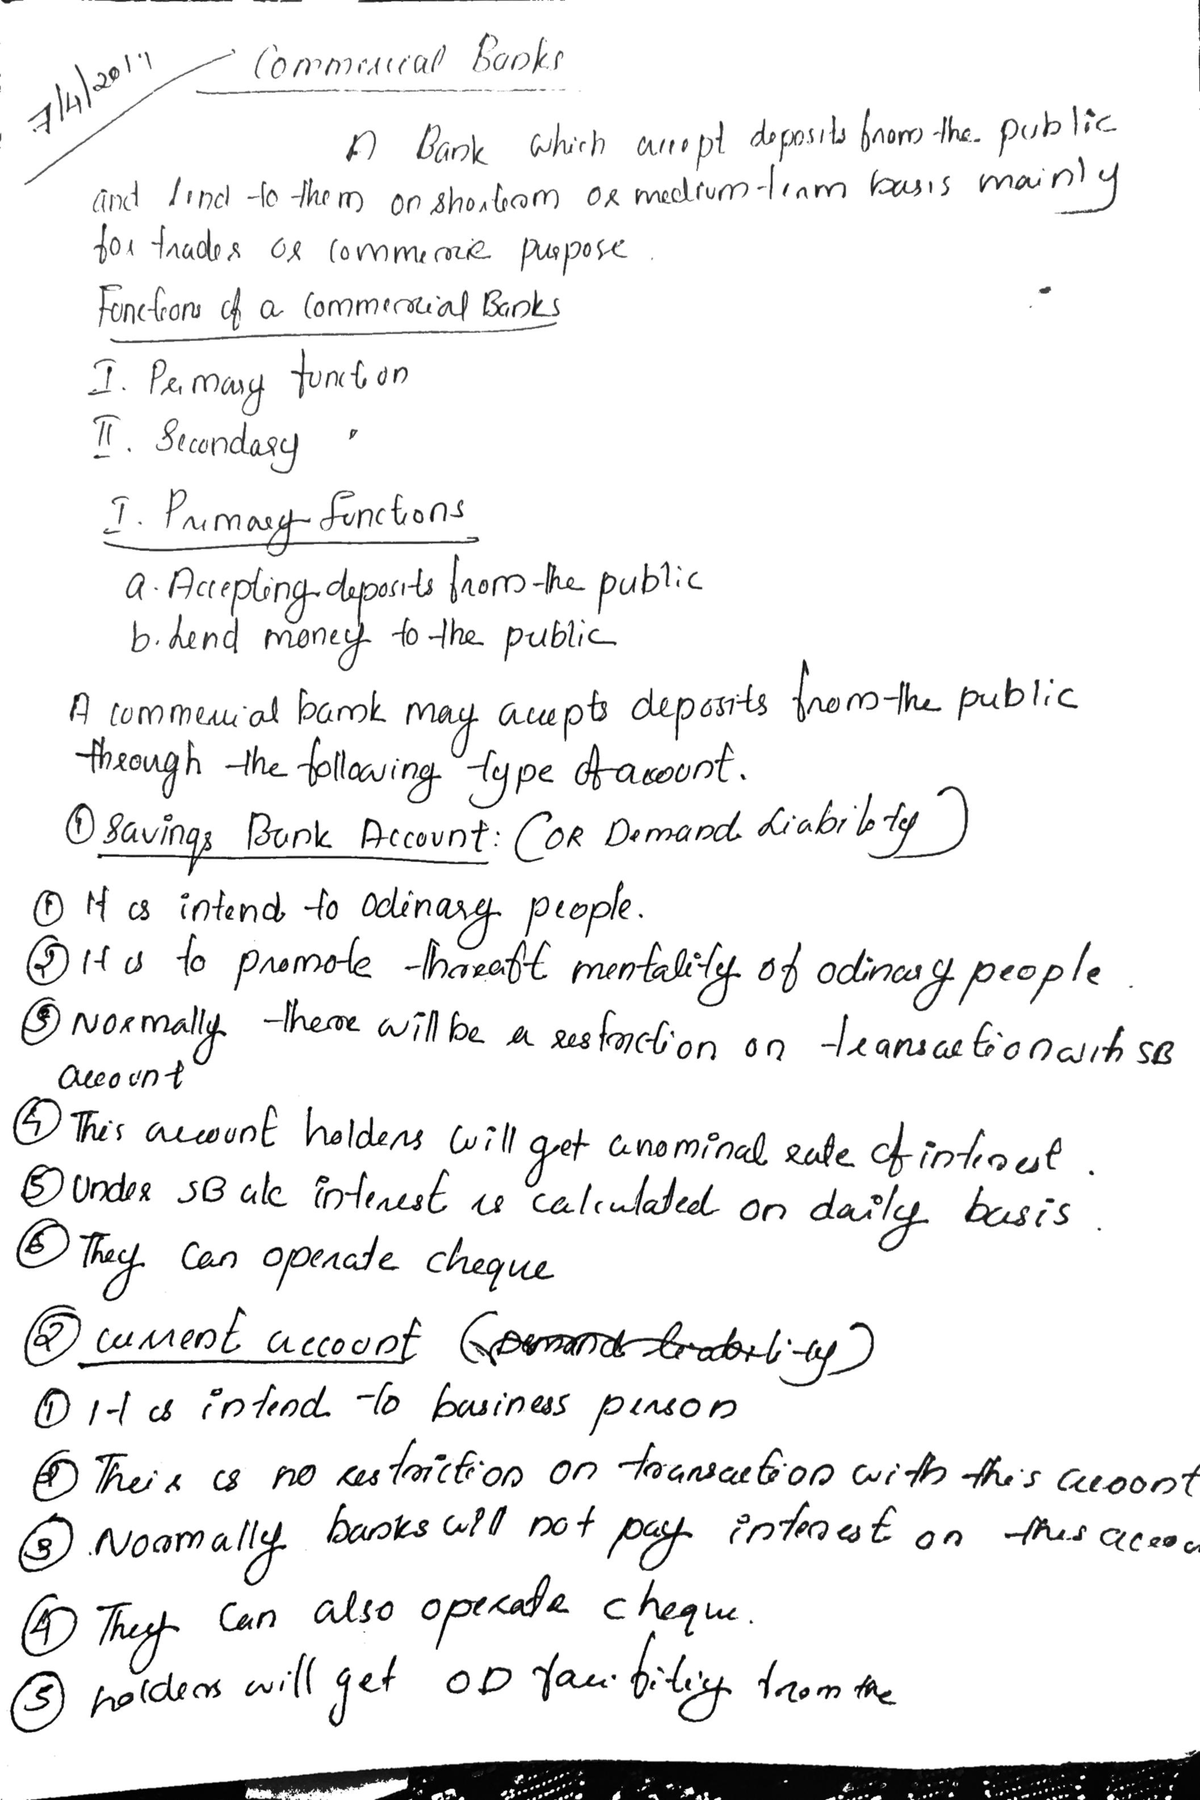 7/4/2017
Commercial Banks
A Bank which accept deposits from the public
and lend to them on shorterm or medium term basis mainly
for trades or commercie purpose.
Functions of a commercial Banks
I. Primary function
II. Secondary "
I. Primary functions
a. Accepting deposits from the public
b. Lend money to the public
A commercial bank may accepts deposits from the public
through the following type of account.
① Savings Bank Account: (OR Demand Liability)
① It is intend to odinary people.
② It is to promote thareaft mentality of odinary people.
③ Normally there will be a restriction on transaction with SB
account
④ This account holders will get a nominal rate of interest.
⑤ Under SB a/c interest is calculated on daily basis.
⑥ They can operate cheque
② current account (Demand liability)
① It is intend to business person
② Their is no restriction on transaction with this account
③ Normally banks will not pay interest on this accou
④ They can also operate cheque.
⑤ holders will get OD from the